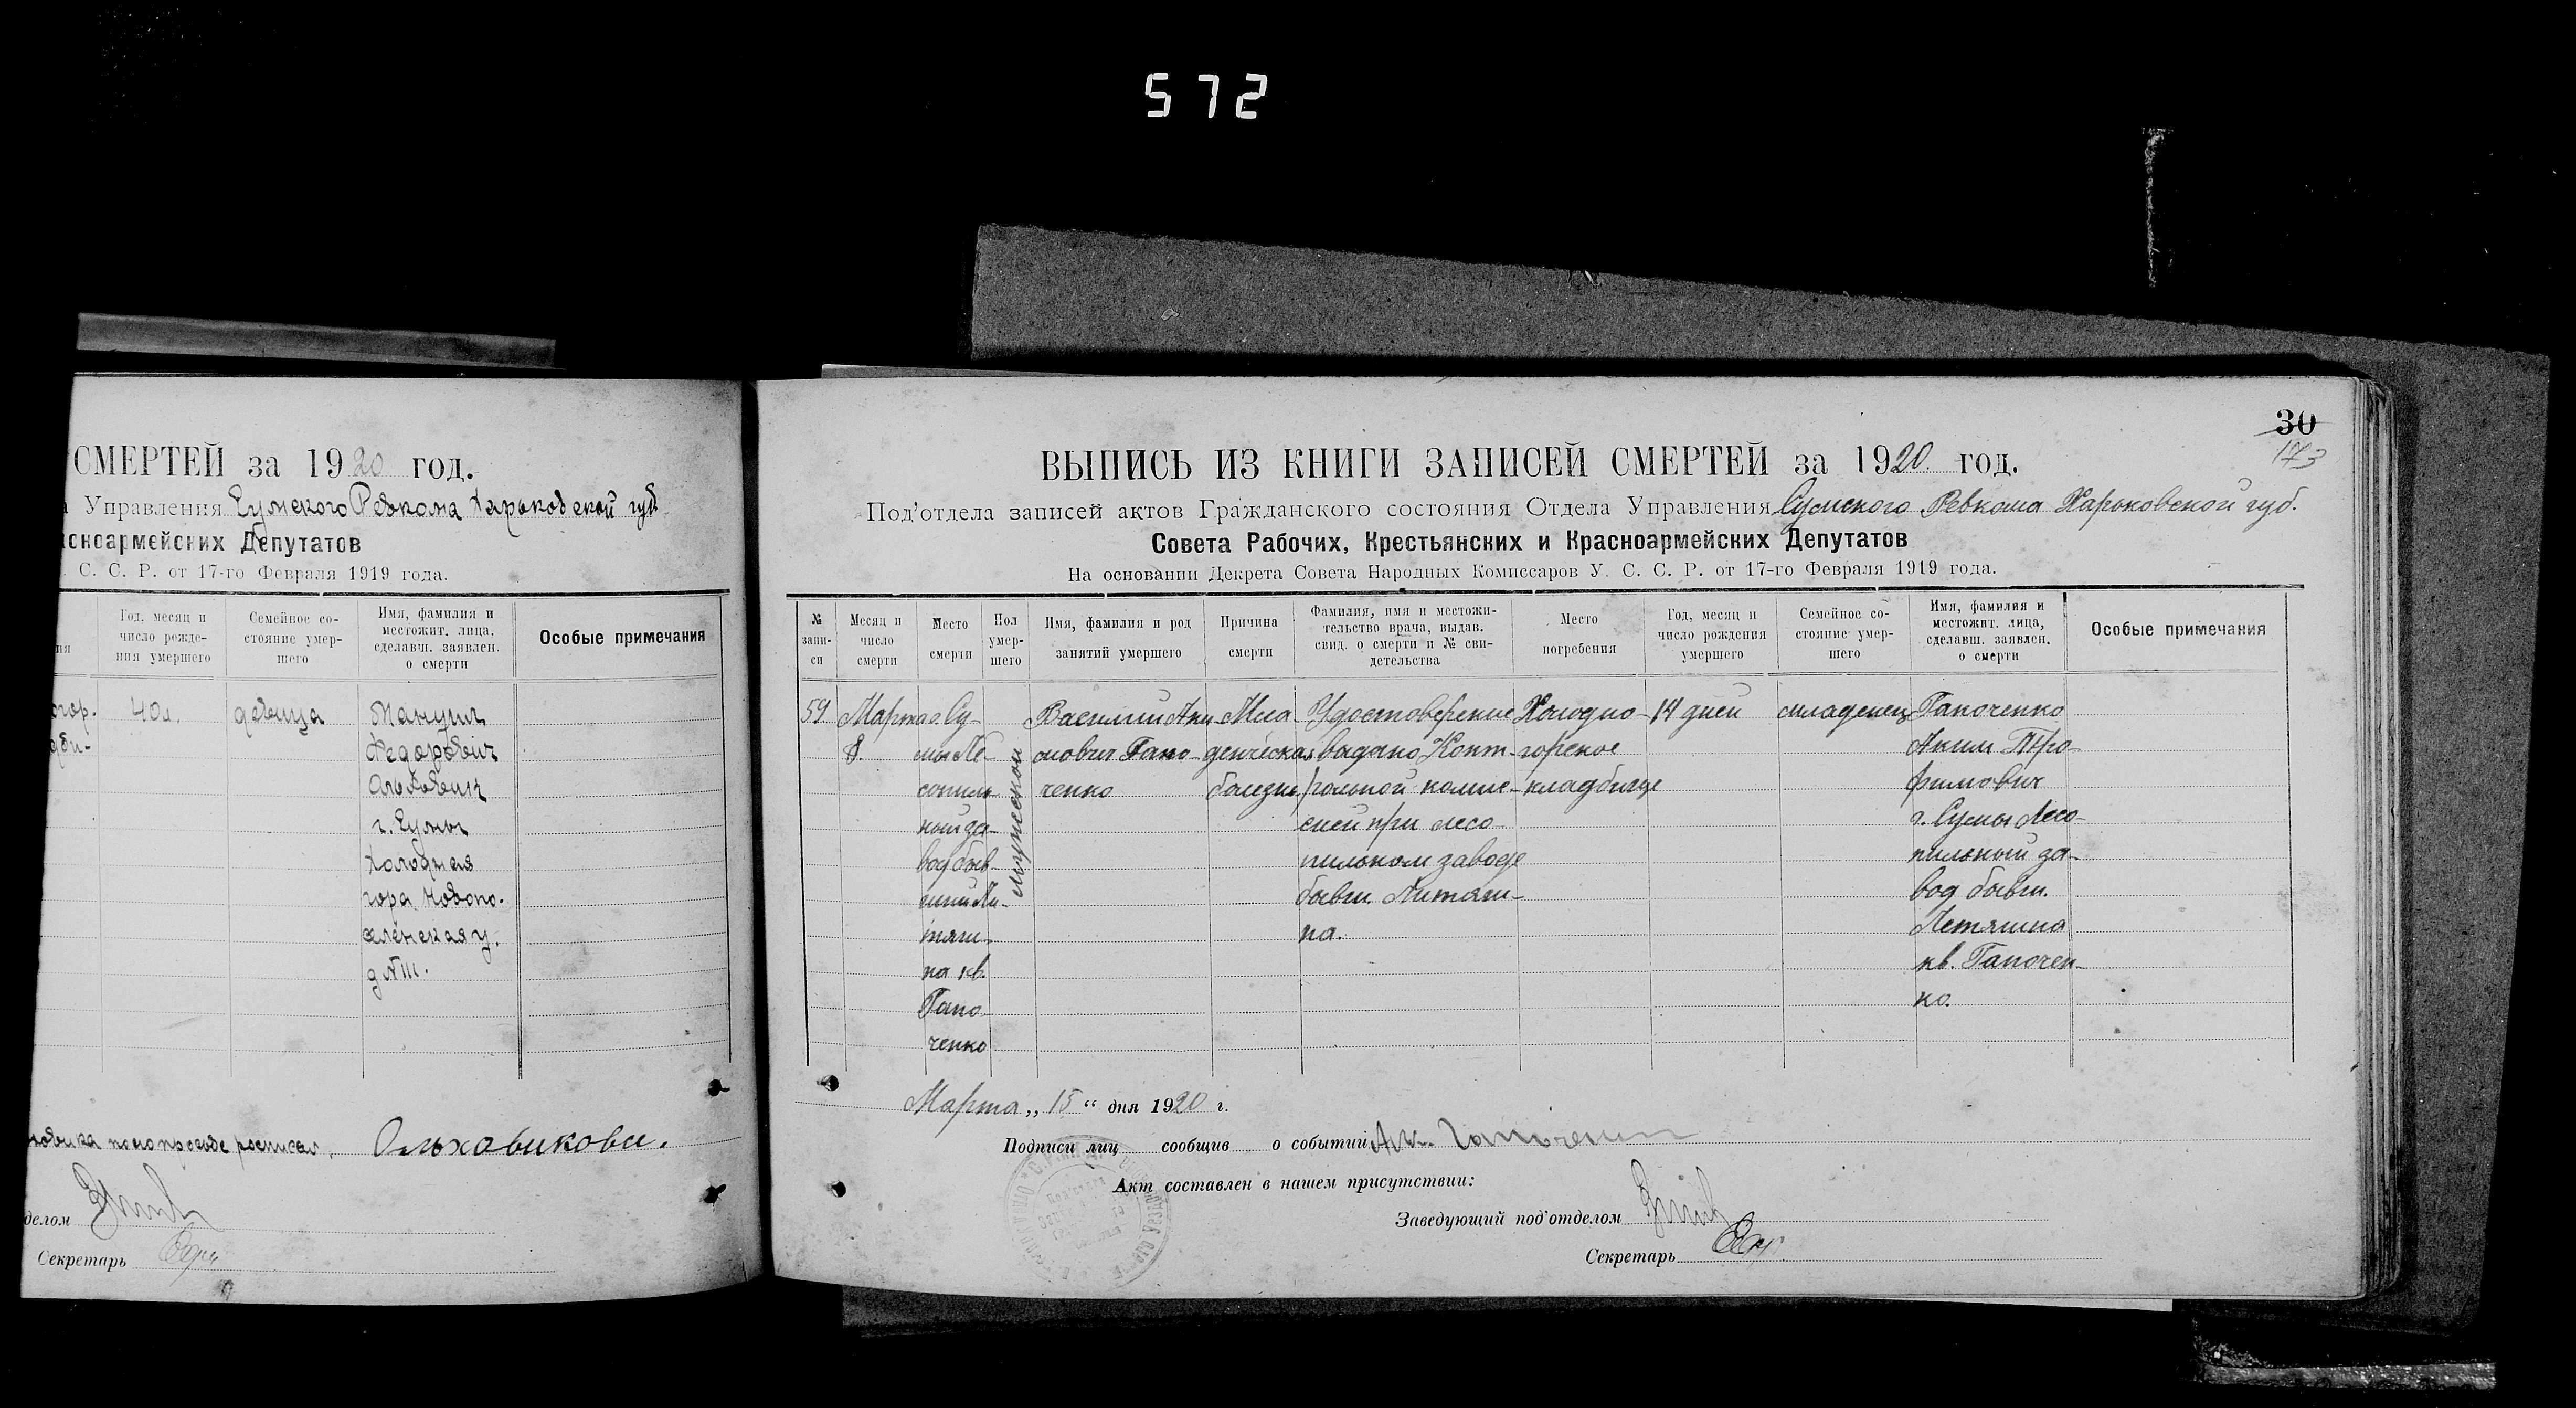 572
СМЕРТЕЙ за 1920 год.
Управления Сумского Ревкома Харьковской губ
асноармейских Депутатов
. С. С. Р. от 17-го Февраля 1919 года.
Год, месяц и число рожде- ния умершего
Семейное со- стояние умер- шего
Имя, фамилия и местожит. лица, сделавш. заявлен. о смерти
Особые примечания
40 л.
девица
Федорович
г. Сумы
Холодная
гора Ново
д №
Ольховикова.
делом
Секретарь
30
173
ВЫПИСЬ ИЗ КНИГИ ЗАПИСЕЙ СМЕРТЕЙ за 1920 год.
Под'отдела записей актов Гражданского состояния Отдела Управления Сумского Ревкома Харьковской губ.
Совета Рабочих, Крестьянских и Красноармейских Депутатов
На основании Декрета Совета Народных Комиссаров У. С. С. Р. от 17-го Февраля 1919 года.
№ запи- си
Месяц и число смерти
Место смерти
Пол умер- шего
Имя, фамилия и род занятий умершего
Причина смерти
Фамилия, имя и местожи- тельство врача, выдав. свид. о смерти и № сви- детельства
Место погребения
Год, месяц и число рождения умершего
Семейное со- стояние умер- шего
Имя, фамилия и местожит. лица, сделавш. заявлен. о смерти
Особые примечания
59.
Марта
8.
г. Су-
мы Ле-
сопиль-
ный за-
вод быв-
ший Ли-
тяги-
на кв.
Гапо
ченко
Мужской
Василий Аки-
мович Гапо-
ченко
Мла-
денческая
болезнь
Удостоверение
выдано Конт-
рольной комис-
сией при лесо-
пильном заводе
бывш. Литяги-
на.
Холодно-
горское
кладбище
14 дней
младенец
Гапоченко
Аким Тро-
фимович
г. Сумы Лесо-
пильный за-
вод бывш.
Летягина
кв. Гапочен-
ко.
Марта „ 15 “ дня 1920 г.
Подписи лиц сообщив о событии Ак. Гапоченко
Акт составлен в нашем присутствии:
Заведующий под'отделом
Секретарь